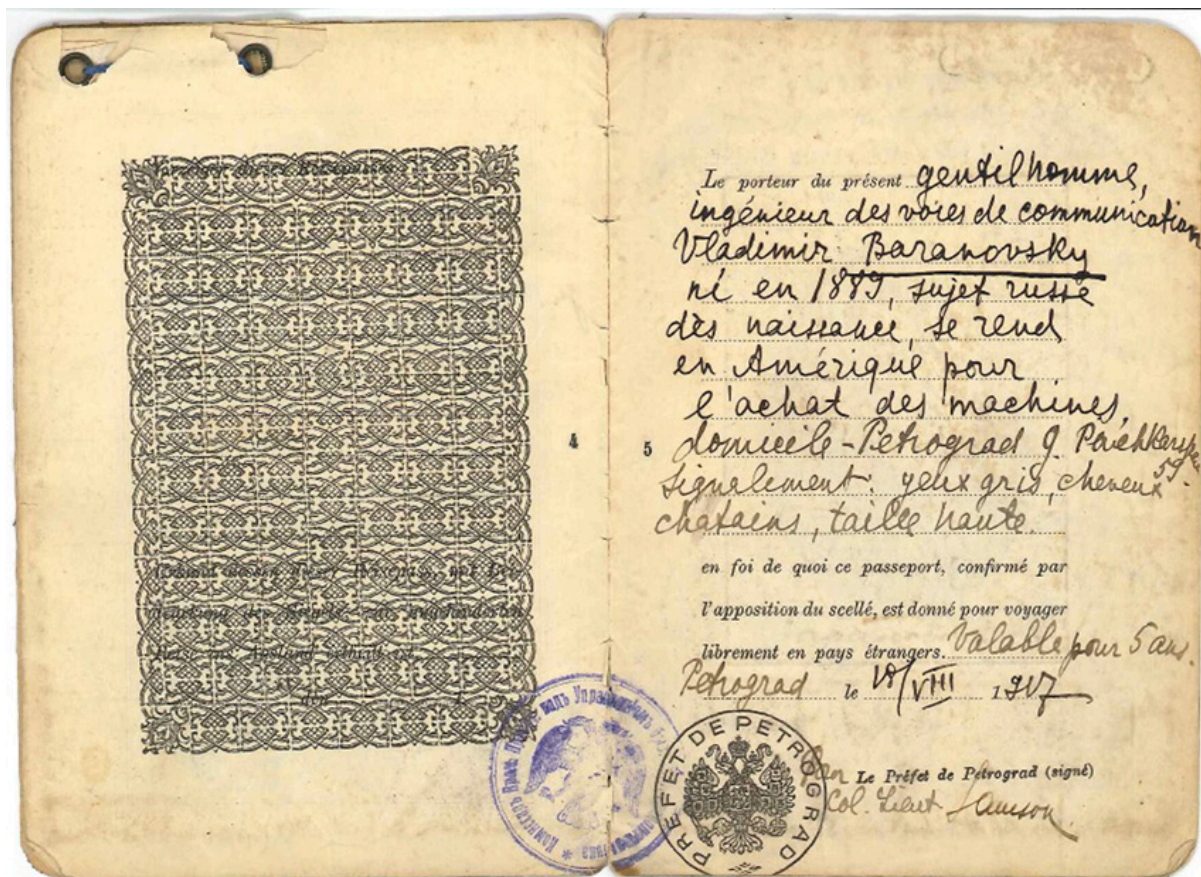 Vorzeiger dieses Reisepasses
dieser Reisepass, mit
ins Ausland ertheilt ist
den
4
5
Le porteur du présent gentilhomme,
ingénieur des voies de communication
Vladimir Baranovsky
né en 1889, sujet russe
dès naissance, se rend
en Amérique pour
l'achat des machines,
domicile - Petrograd q.
59.
signalement: yeux gris, cheveux
chatains, taille haute.
en foi de quoi ce passeport, confirmé par
l'apposition du scellé, est donné pour voyager
librement en pays étrangers. Valable pour 5 ans.
Petrograd le 18/VIII 1917
PREFET DE PETROGRAD
Le Préfet de Petrograd (signé)
Col. Lieut